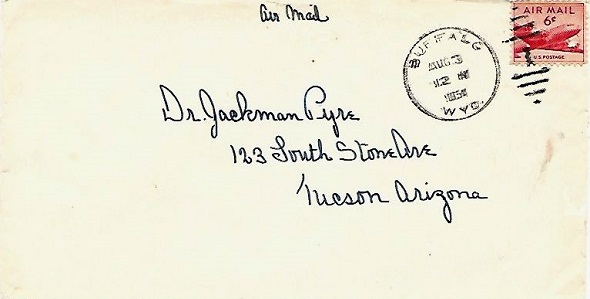 Air Mail
AIR MAIL
6¢
U.S. POSTAGE
BUFFALO
AUG 3
12 M
WYO.
Dr. Jackman Pyre
123 South Stone Ave
Tucson Arizona